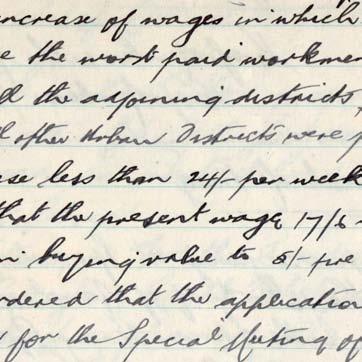 increase of wages in which
the worst paid workmen
the adjoining districts,
other Urban Districts were
less than 24/- per week
that the present wage 17/6
in buying value to 5/- pre
ordered that the application
for the Special Meeting of